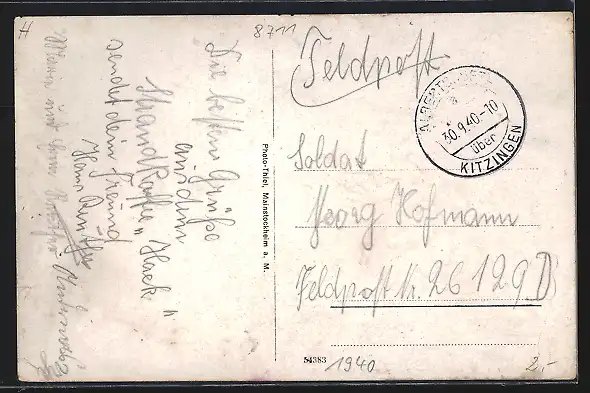 H
8711
Die besten Grüße
aus dem
Strandkaffe „Hack"
sendet dein Freund
Hans
Maria und
Photo-Thiel, Mainstockheim a. M.
Feldpost
ALBERTSHOFEN
30.9.40-10
über
KITZINGEN
Soldat
Georg Hofmann
Feldpost Nr. 26129 D
54383
1940
2,-